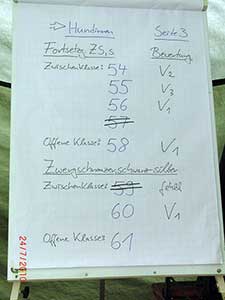 ⇒ Hündinnen Seite 3
Fortsetzg ZS,s Bewertung
Zwischenklasse: 54 V2
55 V3
56 V1
57
Offene Klasse: 58 V1
Zwergschnauzer schwarz-silber
Zwischenklasse: 59 fehlt
60 V1
Offene Klasse: 61
24/7/2010